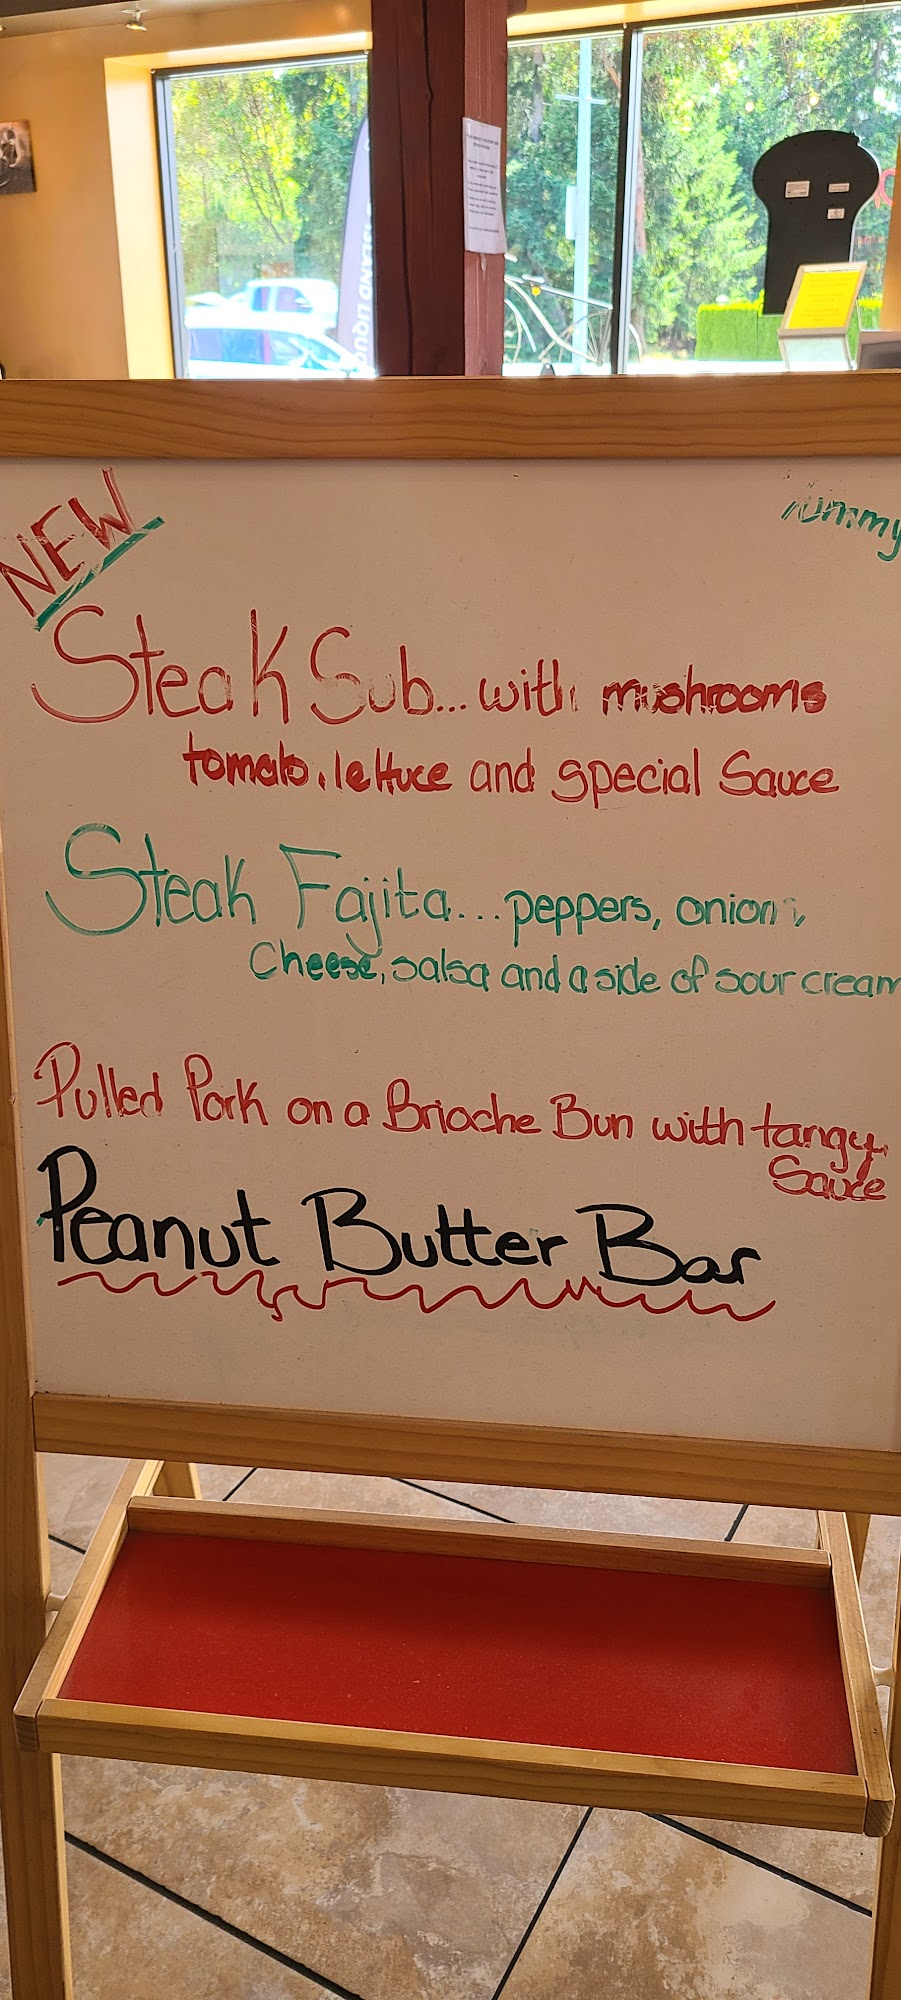 NEW
Yummy
Steak Sub... with mushrooms
tomato, lettuce and special Sauce
Steak Fajita... peppers, onions,
Cheese, salsa and a side of sour cream
Pulled Pork on a Brioche Bun with tangy
Sauce
Peanut Butter Bar